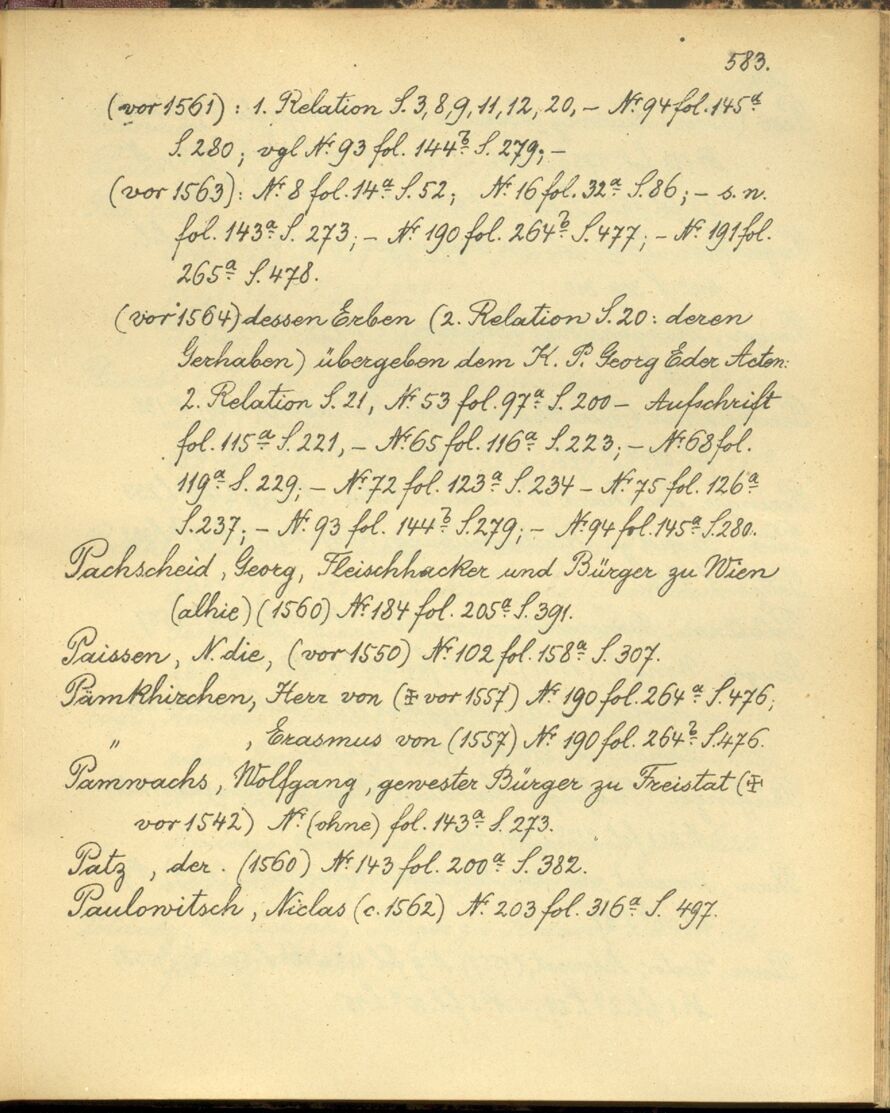 583.
(vor 1561) : 1. Relation S. 3, 8, 9, 11, 12, 20, – Nr. 94 fol. 145a
S. 280 ; vgl Nr. 93 fol. 144b S. 279; –
(vor 1563): Nr. 8 fol. 14a S. 52; Nr. 16 fol. 32a S. 86 ; – s. n.
fol. 143a S. 273; – Nr. 190 fol. 264b S. 477; – Nr. 191 fol.
265a S. 478.
(vor 1564) dessen Erben (2. Relation S. 20 : deren
Gerhaben) übergeben dem K. P. Georg Eder Acten:
2. Relation S. 21, Nr. 53 fol. 97a S. 200 – Aufschrift
fol. 115a S. 221, – Nr. 65 fol. 116a S. 223; – Nr. 68 fol.
119a S. 229; – Nr. 72 fol. 123a S. 234 – Nr. 75 fol. 126a
S. 237; – Nr. 93 fol. 144b S. 279; – Nr. 94 fol. 145a S. 280.
Pachscheid, Georg, Fleischhacker und Bürger zu Wien
(alhie) (1560) Nr. 184 fol. 205a S. 391.
Paissen, N. die, (vor 1550) Nr. 102 fol. 158a S. 307.
Pämkhirchen, Herr von (✠ vor 1557) Nr. 190 fol. 264a S. 476;
" , Erasmus von (1557) Nr. 190 fol. 264b S. 476.
Pamwachs, Wolfgang, gewester Bürger zu Freistat (✠
vor 1542) Nr. (ohne) fol. 143a S. 273.
Patz , der . (1560) Nr. 143 fol. 200a S. 382.
Paulowitsch, Niclas (c. 1562) Nr. 203 fol. 316a S. 497.